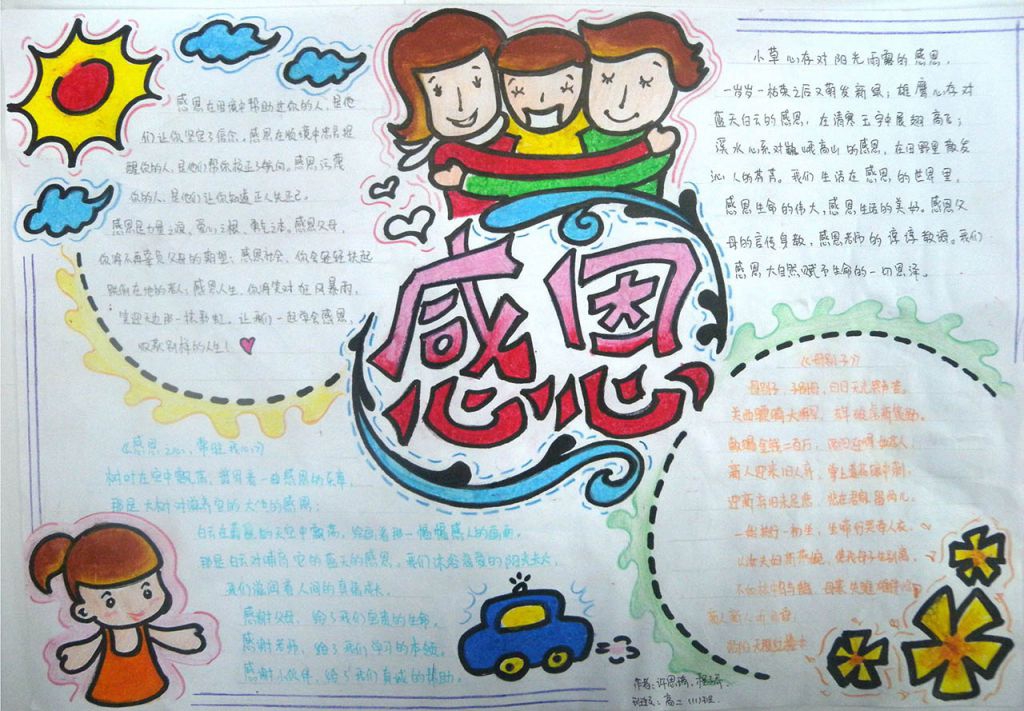 感恩在困境中帮助过你的人，是他
们让你坚定了信念。感恩在顺境中告提
醒你的人，是他们帮你校正人航向。感恩
你的人，是他们让你知道正人先正己。
感恩是力量之源，爱心之根，勇气之本。感恩父母，
你将不再辜负父母的期望；感恩社会，你会轻轻扶起
跌倒在地的老人；感恩人生，你将笑对狂风暴雨，
笑迎天边那一抹彩虹。让我们一起学会感恩，
收获别样的人生！
小草心存对阳光雨露的感恩，
一岁岁一枯荣之后又萌发新绿；雄鹰心存对
蓝天白云的感恩，在清寒玉宇中展翅高飞；
溪水心系对巍峨高山的感恩，在田野里散发
沁人的芳菁。我们生活在感恩的世界里，
感恩生命的伟大，感恩生活的美好。感恩父
母的言传身教，感恩老师的谆谆教诲。我们
感恩大自然赋予生命的一切恩泽。
感恩
《感恩之心，常驻我心间》
树叶在空中飘荡，谱写着一曲感恩的乐章，
那是大树对滋养它的大地的感恩；
白云在蔚蓝的天空中飘荡，绘画着那一幅幅感人的画面，
那是白云对哺育它的蓝天的感恩。我们沐浴着爱的阳光长大，
我们滋润着人间的真情成长，
感谢父母，给了我们宝贵的生命。
感谢老师，给了我们学习的本领。
感谢小伙伴，给了我们真诚的帮助。
《母别子》
母别子，子别母，白日无光哭声苦。
关西骠骑大将军，去年破虏新策勋。
敕赐金钱二百万，洛阳迎得如花人。
新人迎来旧人弃，掌上莲花眼中刺。
迎新弃旧未足悲，悲在君家留两儿。
一始扶行一初坐，坐啼行哭牵人衣。
以汝夫妇新燕婉，使我母子生别离。
不如林中乌与鹊，母不失雏雄伴
作者：许思琦
班级：高二(11)班